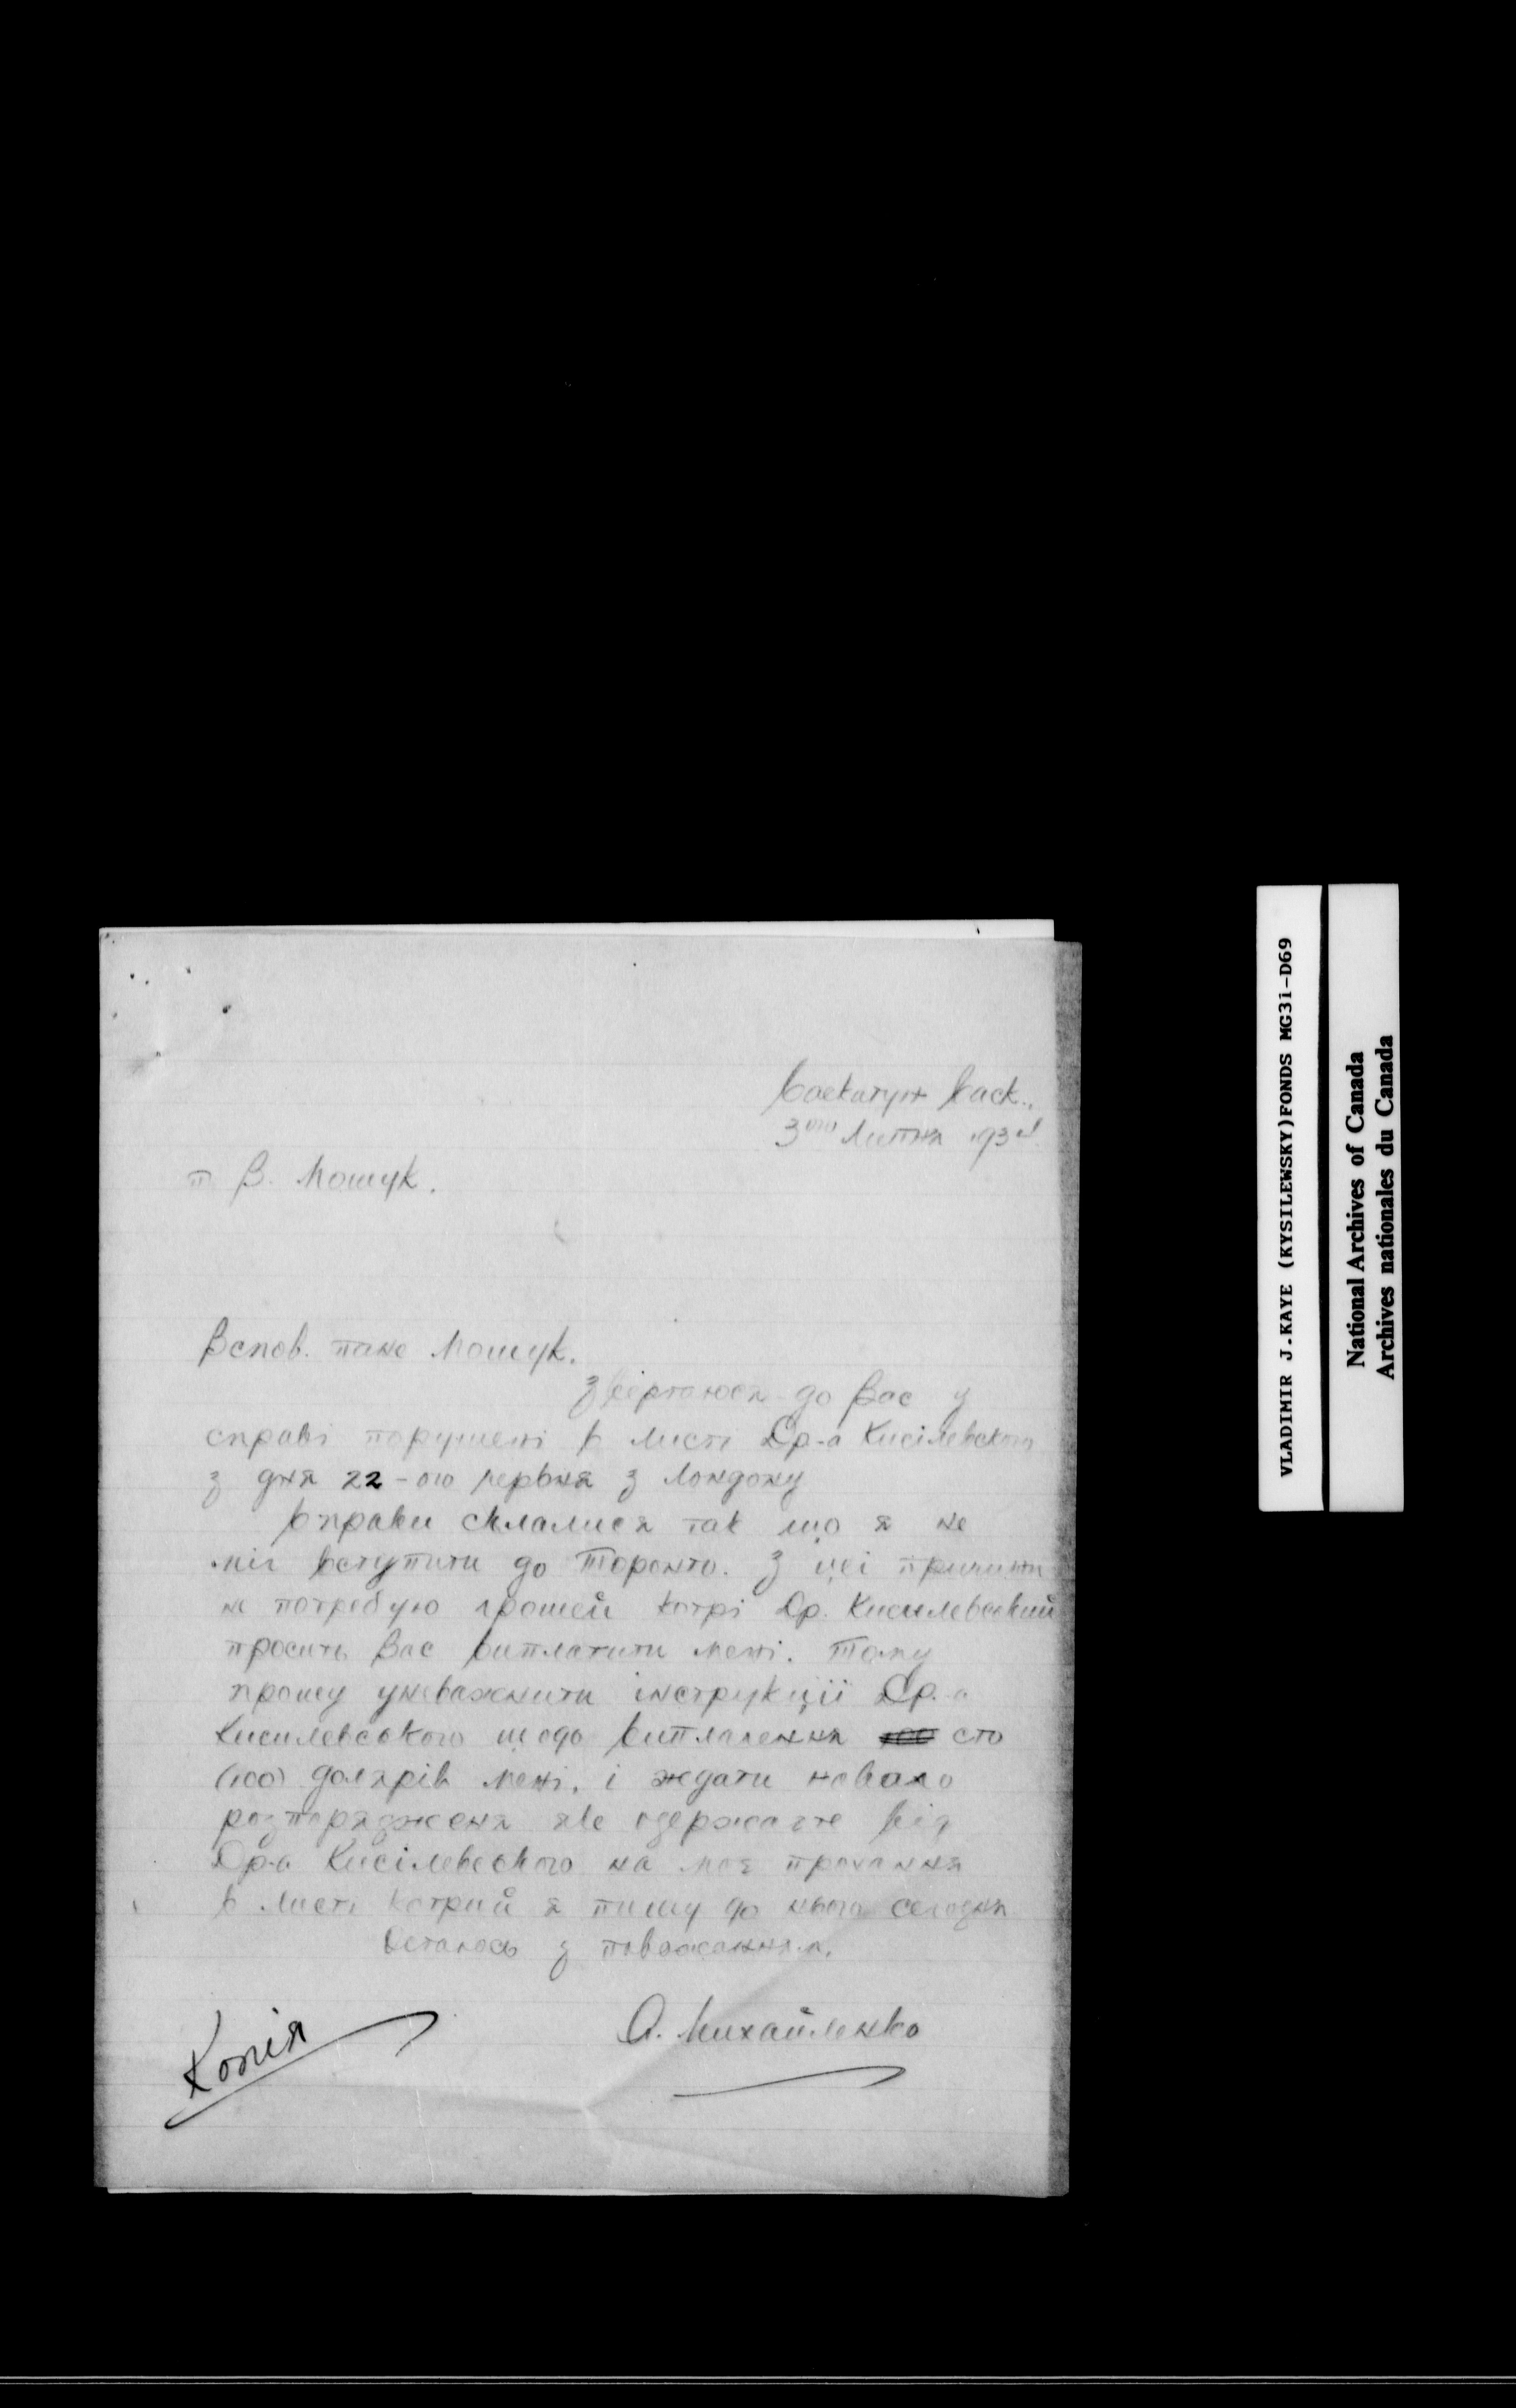 Саскатун Саск.,
3ого Липня 193
п. В. Мошук.
Вспов. пане Мошук.
Звертаюся до Вас у
справі порушені в листі Др-а Кисілевского
з дня 22-ого червня з Лондону
Справи склалися так що я не
міг вступити до Торонто. З цеі причини
не потребую грошей котрі Др. Кисилевский
просить Вас виплатити мені. Тому
прошу уневажнити інструкціі Др.-а
Кисилевського щодо виплачення сто
(100) долярів мені. і ждати нового
розпорядженя яке одержите від
Др-а Кисілевського на моє прохання
в листі котрий я пишу до нього сегодня
Остаюсь з поважанням.
О. Михайленко
Копія
VLADIMIR J.KAYE (KYSILEWSKY)FONDS MG31-D69
National Archives of Canada
Archives nationales du Canada